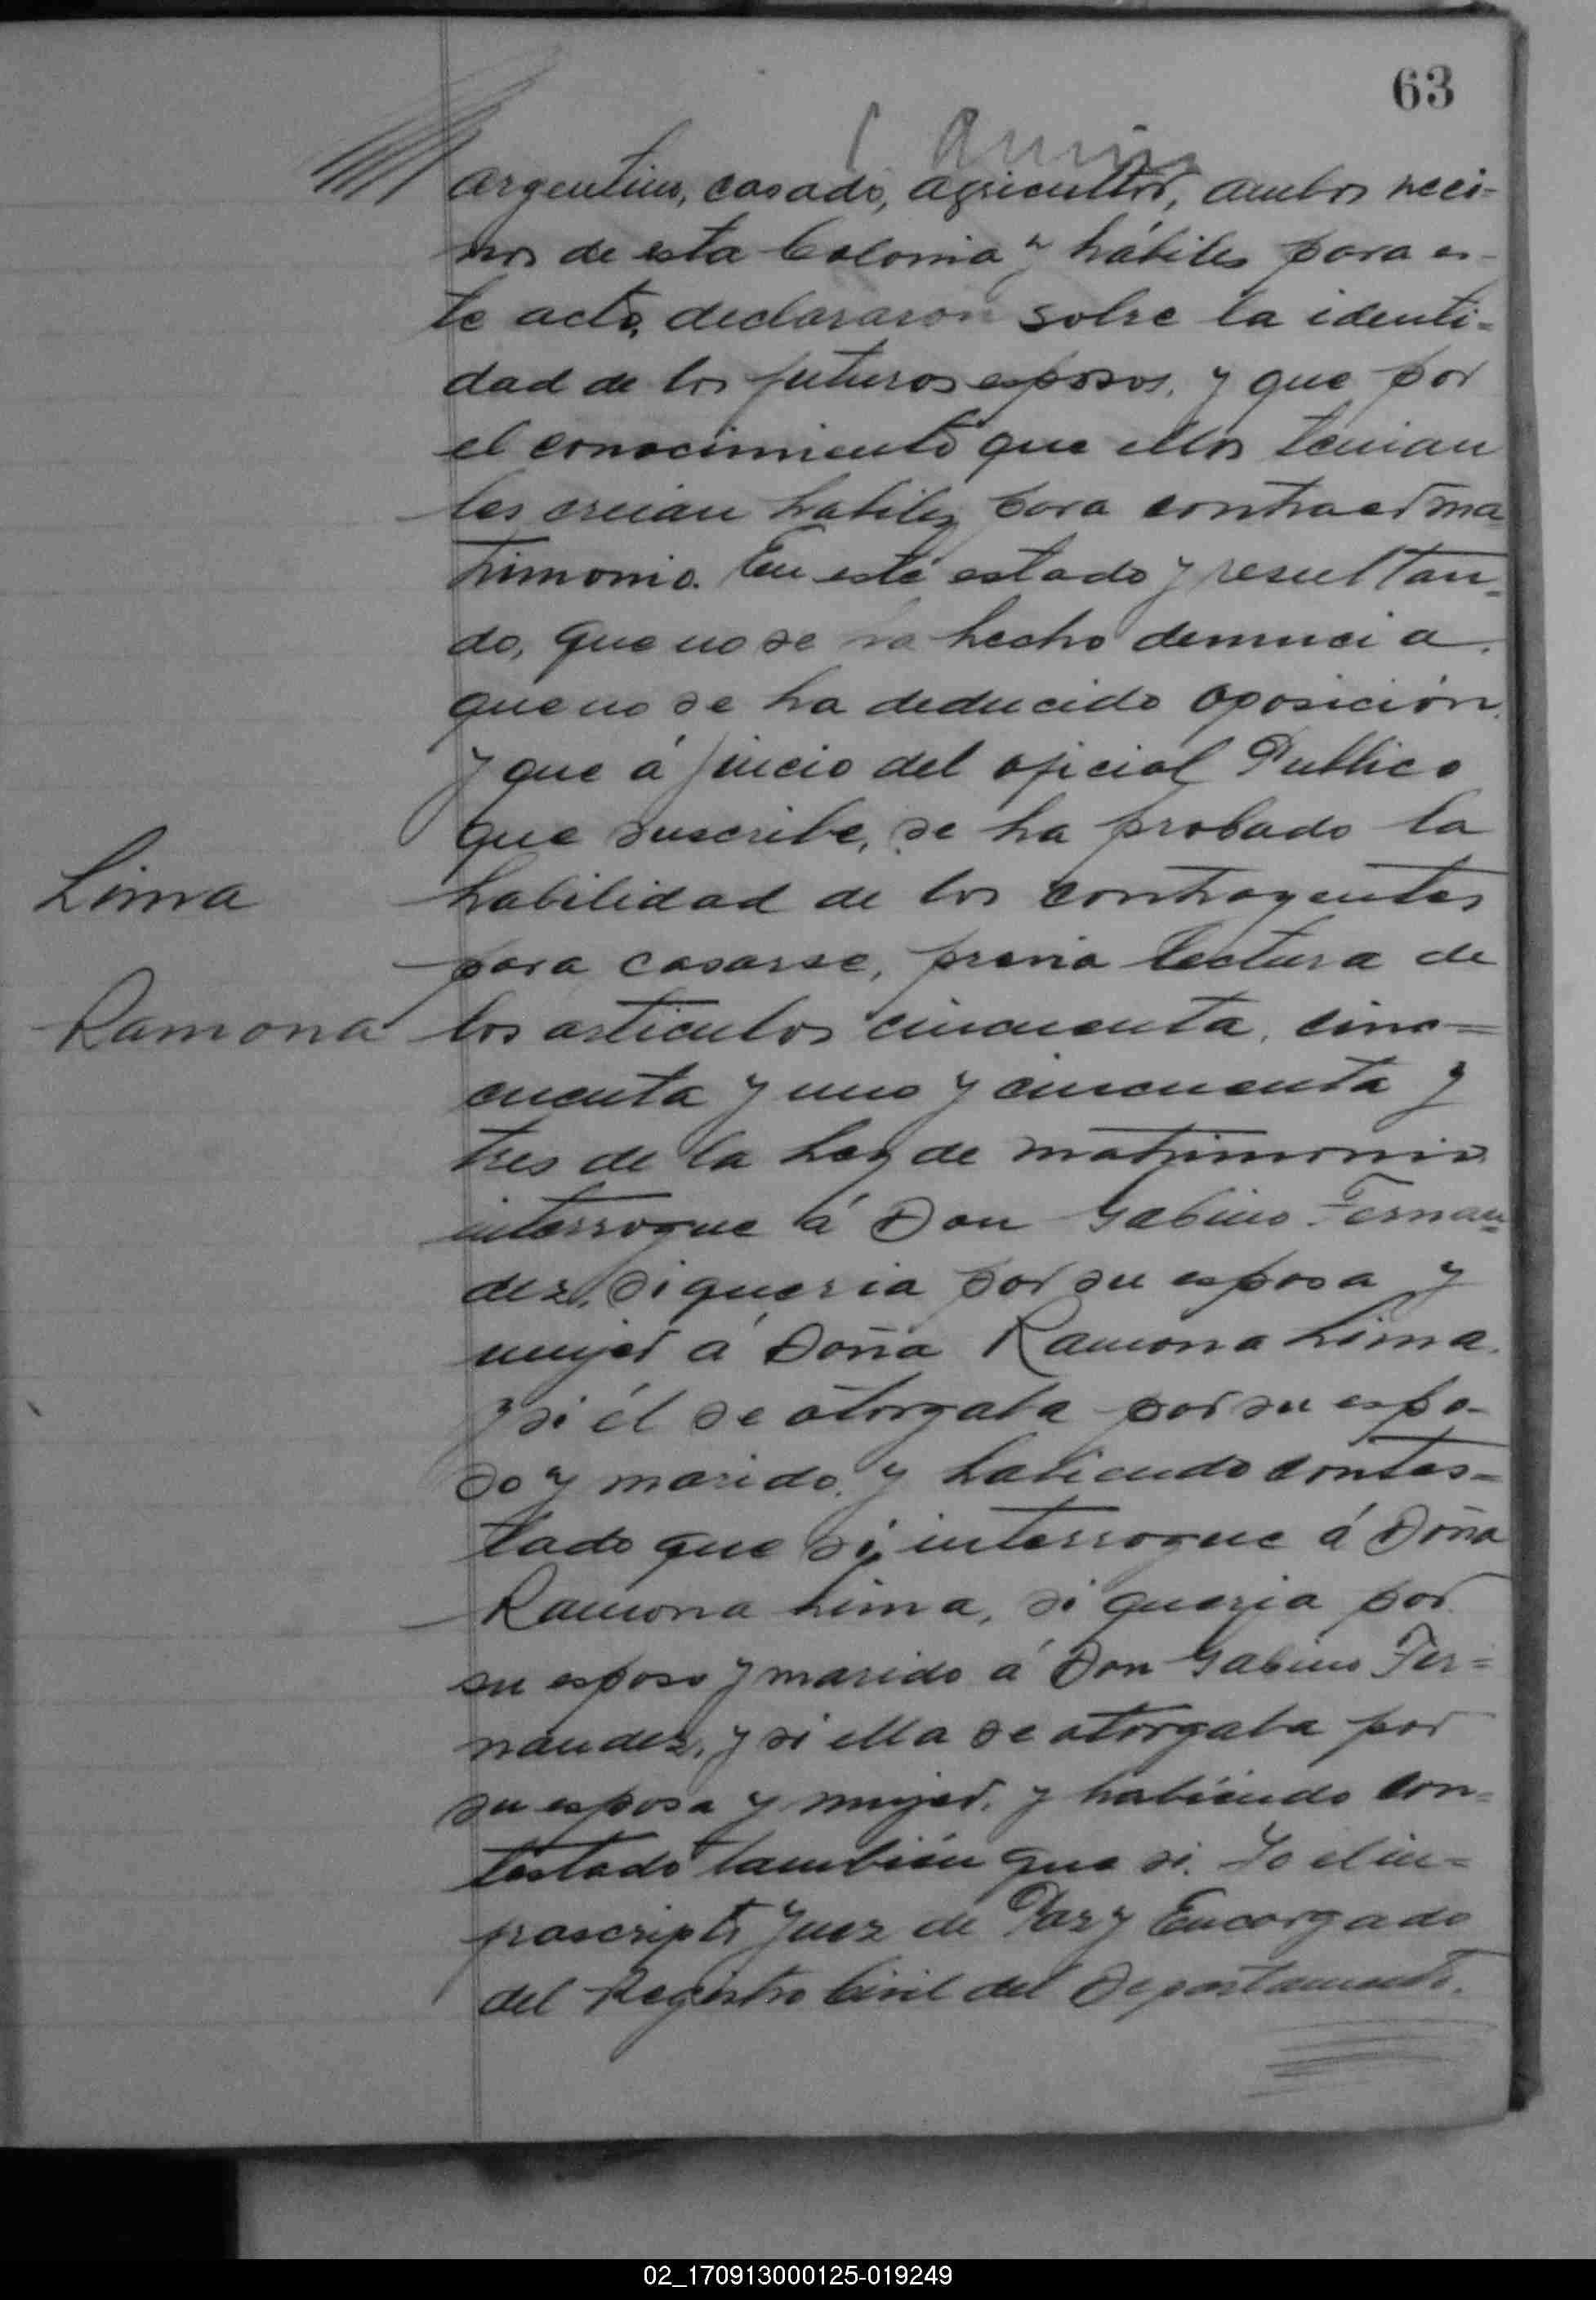 63
argentino, casado, agricultor, ambos veci-
nos de esta Colonia y hábiles para es-
te acto, declararon sobre la identi-
dad de los futuros esposos, y que por
el conocimiento que ellos tenian
les creian habiles para contraer ma
trimonio. En este estado y resultan-
do, que no se ha hecho denuncia,
que no se ha deducido oposición,
y que á juicio del oficial Publico
que suscribe, se ha probado la
Lima
habilidad de los contrayentes
para casarse, previa lectura de
Ramona
los articulos cincuenta, cin-
cuenta y uno y cincuenta y
tres de la Ley de matrimonio
interrogue á Don Gabino Fernan-
dez, si queria por su esposa y
mujer á Doña Ramona Lima,
y si él se otorgaba por su espo-
so y marido, y habiendo contes-
tado que si, interrogue á Doña
Ramona Lima, si queria por
su esposo y marido á Don Gabino Fer-
nandez, y si ella se otorgaba por
su esposa y mujer, y habiendo con-
testado también que si. Yo el in-
frascripto Juez de Paz y Encargado
del Registro Civil del Departamento.
02_170913000125-019249